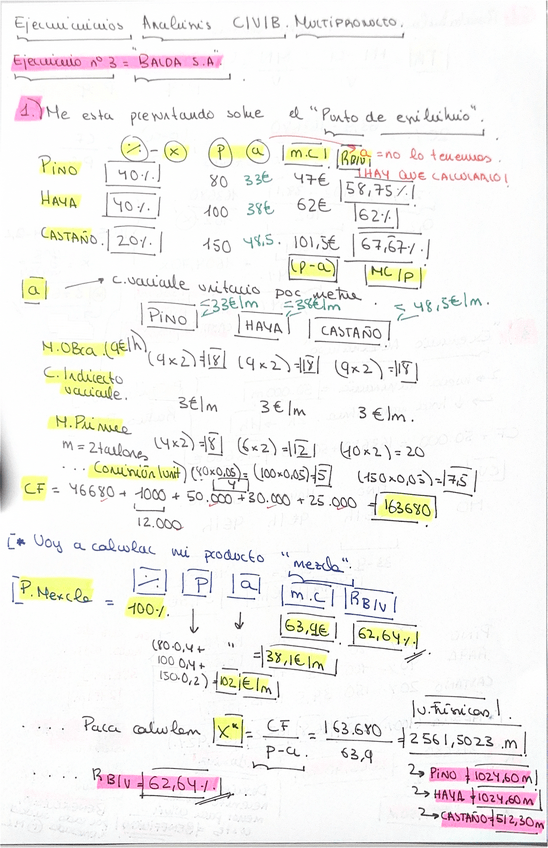 Ejercicios Análisis C/V/B. MULTIPRODUCTO.
Ejercicio nº 3 = "BALDA S.A".
1.) Me esta preguntando sobre el "Punto de equilibrio".
% - x P a m.c RB/V a = no lo tenemos.
¡HAY QUE CALCULARLO!
PINO 40% 80 33€ 47€ 58,75%
HAYA 40% 100 38€ 62€ 62%
CASTAÑO. 20% 150 48,5. 101,5€ 67,67%
(p-a) MC/P
a → C. variable unitario por metro.
PINO = 33€/m HAYA = 38€/m CASTAÑO = 48,5€/m.
M. Obra. (9€/h) (9x2)=18 (9x2)=18 (9x2)=18
C. Indirecto variable. 3€/m 3€/m 3€/m.
M. Prima
m = 2 tablones (4x2)=8 (6x2)=12 (10x2)=20
... Comisión (unit) (80x0,05)=4 (100x0,05)=5 (150x0,05)=7,5
CF = 46680 + 1000 + 50.000 + 30.000 + 25.000 = 163680
12.000
[* Voy a calcular mi producto "mezcla".
% P a m.c RB/V
P. Mezcla = 100% 63,9€ 62,64%
(80·0,4+ 100·0,4+ 150·0,2) = 102€/m " = 38,1€/m
.... Para calcular X* = CF / p-a = 163.680 / 63,9 = 2561,5023 m
U. Físicas.
→ PINO = 1024,60m
→ HAYA = 1024,60m
→ CASTAÑO = 512,30m
.... RB/V = 62,64%